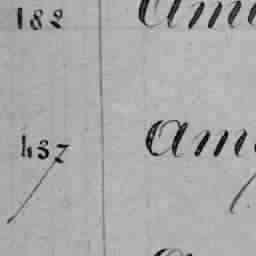 182 Am
437 Am